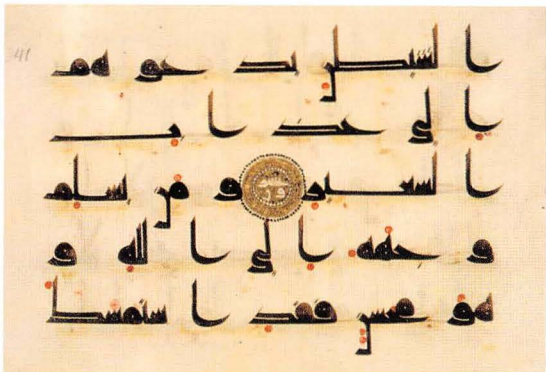 41
الشيطن يدعوهم
الى عذاب
السعير ومن يسلم
وجهه الى الله و
هو محسن فقد استمسك